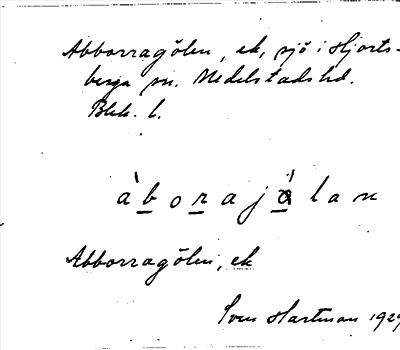 Abborragölen, ek, sjö i Hjorts-
berga sn. Medelstads hd.
Blek. l.
àborajòlan
Abborragölen, ek
Sven Hartman 192